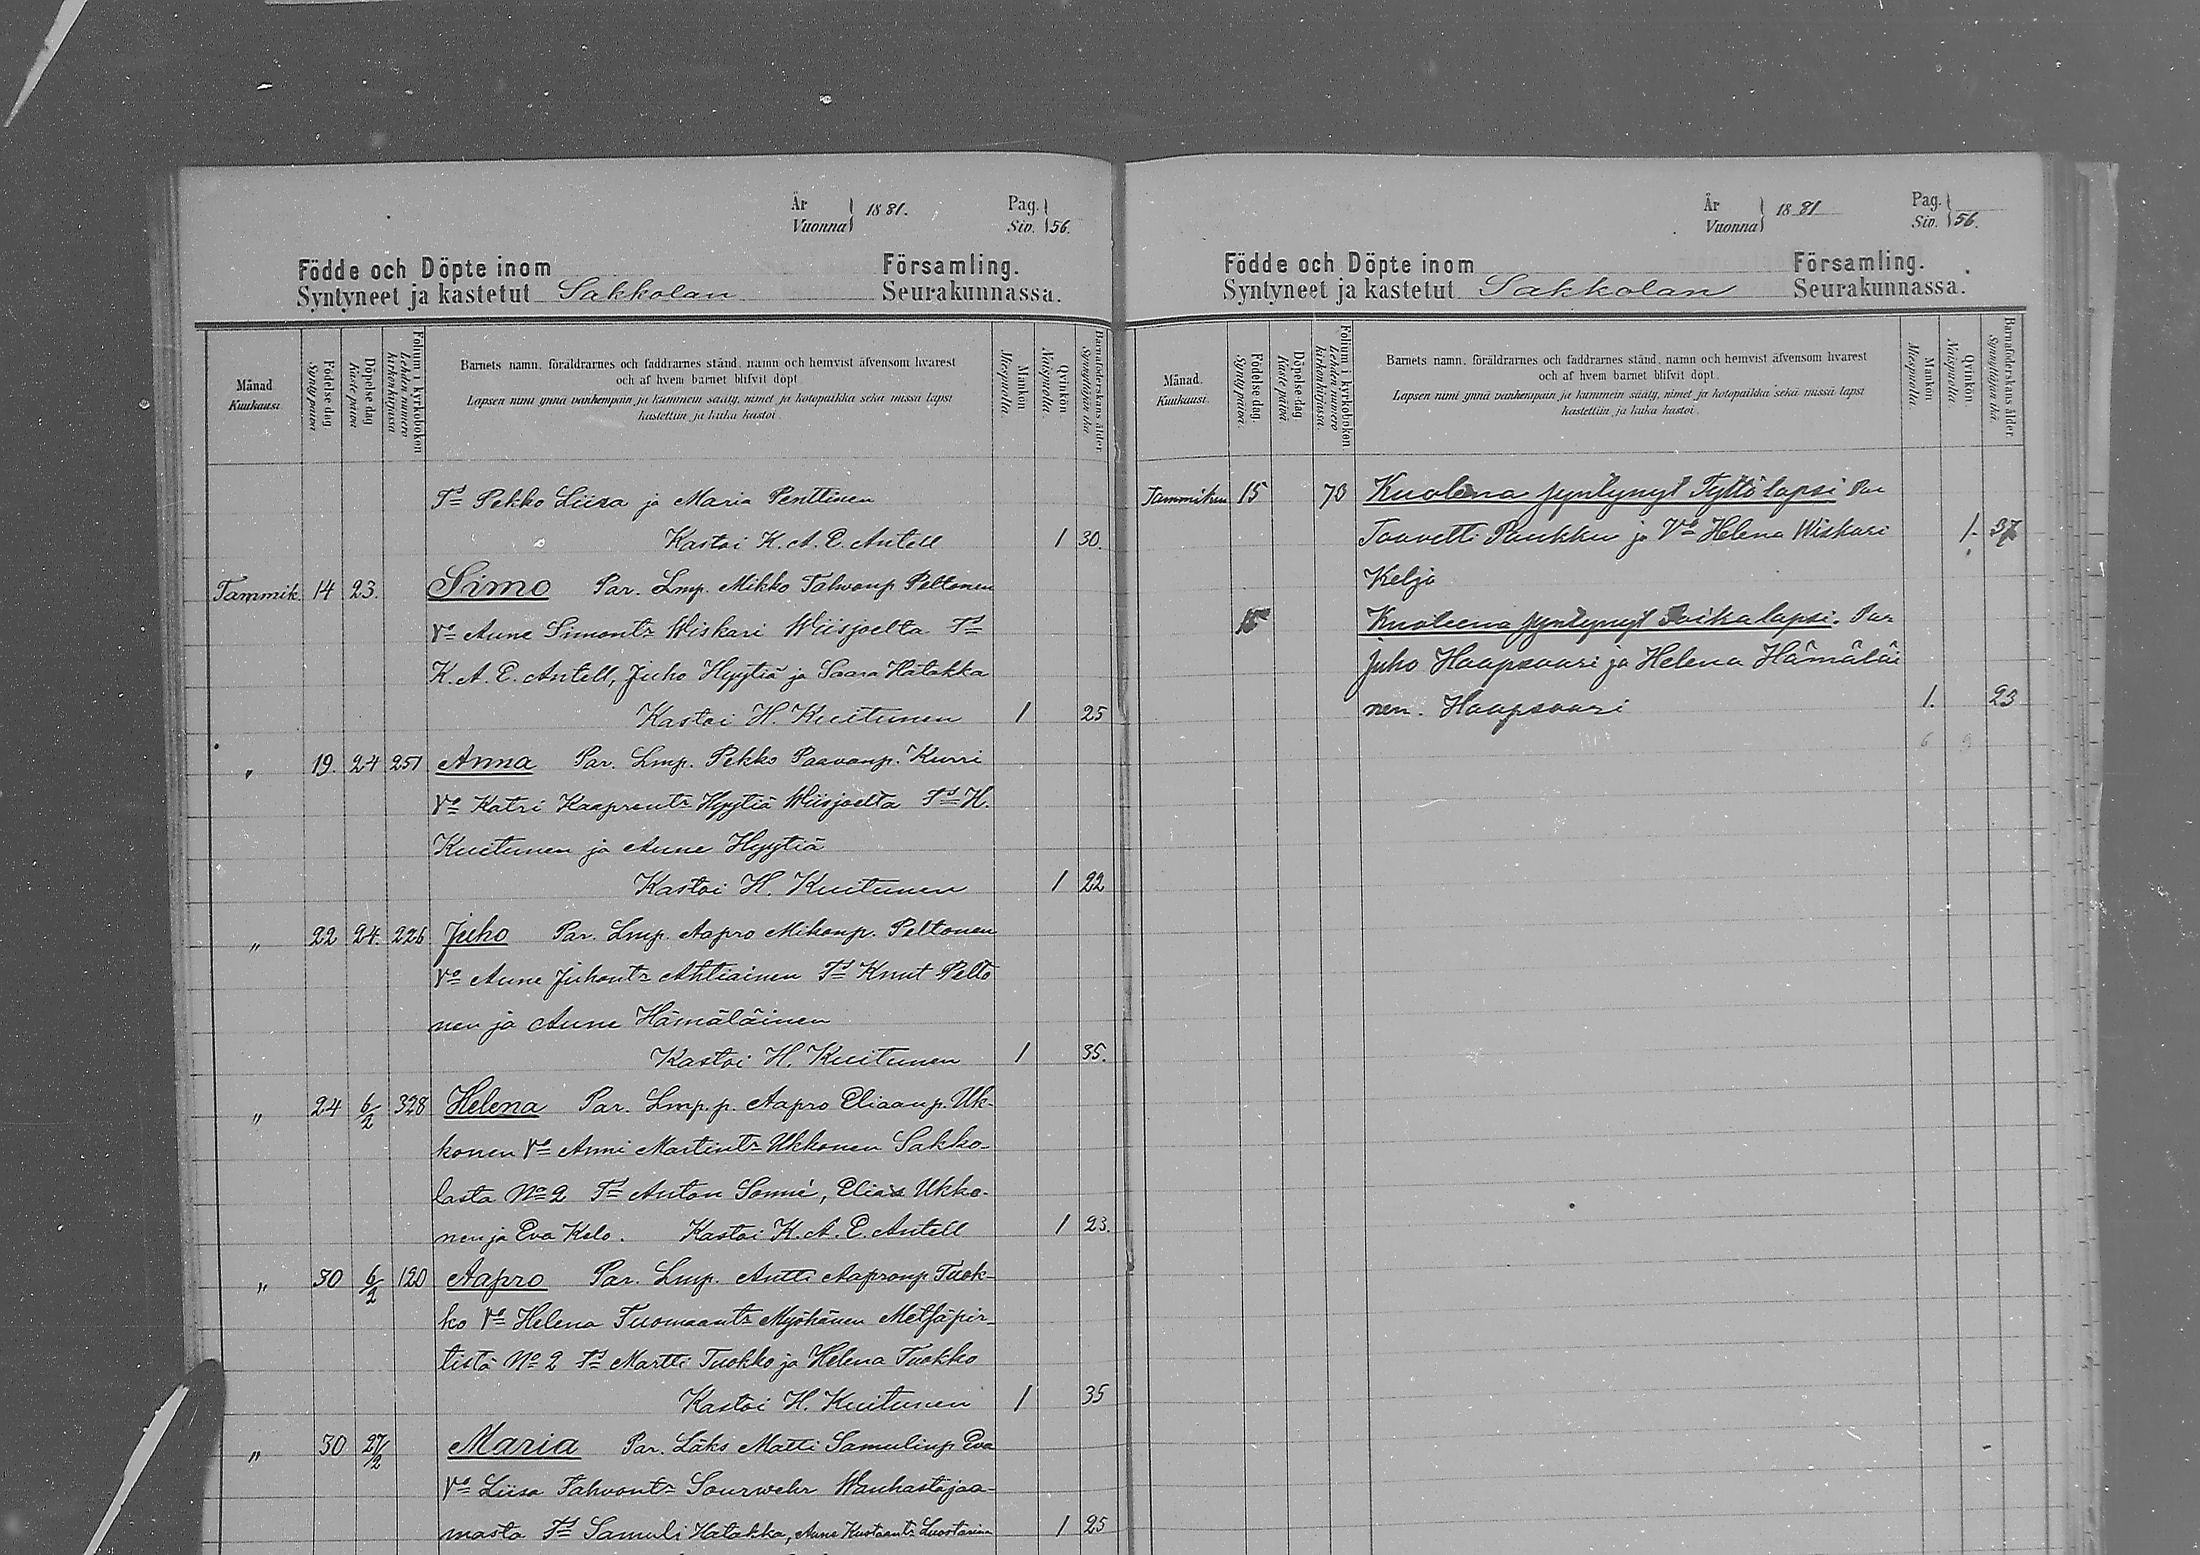 År
Vuonna 1881.
Pag.
Siv. 56.
Födde och Döpte inom Församling.
Syntyneet ja kastetut Sakkolan Seurakunnassa.
Månad.
Kuukausi.
Födelse dag
Synty päivä
Döpelse dag
Kaste päivä
Folium i kyrkoboken
Lehden numero kirkonkirjassa
Barnets namn, föräldrarnes och faddrarnes stånd, namn och hemvist äfvensom hvarest
och af hvem barnet blifvit döpt.
Lapsen nimi ynnä vanhempain ja kummein sääty, nimet ja kotopaikka sekä missä lapsi
kastettiin ja kuka kastoi.
Mankön
Miespuolia.
Qvinkön
Naispuolia.
Barnaföderskans ålder.
Synnyttäjän ikä
Td Pekko Liisa ja Maria Penttinen
Kastoi K. A. E. Antell 1 30.
Tammik. 14 23. Simo Par. Lmp. Mikko Tahvonp. Peltonen
Vo Aune Simontr Wiskari Wiisjoelta Td
K. A. E. Antell, Juho Hyytiä ja Saara Hatakka
Kastoi H. Kuitunen 1 25
" 19. 24 251 Anna Par. Lmp. Pekko Paavonp. Kurri
Vo Katri Kaaprentr Hyytiä Wiisjoelta Td H.
Kuitunen ja Aune Hyytiä
Kastoi H. Kuitunen 1 22
" 22 24. 226 Juho Par. Lmp. Aapro Mikonp. Peltonen
Vo Aune Juhontr Ahtiainen Td Knut Pelto
nen ja Aune Hämäläinen
Kastoi H. Kuitunen 1 35.
" 24 6/2 328 Helena Par. Lmp. p. Aapro Eliaanp. Uk-
konen Vo Anni Martintr Ukkonen Sakko-
lasta No 2 Td Anton Sonné, Elias Ukko-
nen ja Eva Kelo. Kastoi K. A. E. Antell 1 23.
" 30 6/2 120 Aapro Par. Lmp. Antti Aapronp Tuok-
ko Vo Helena Tuomaantr Myöhänen Metsäpir-
tistä No 2 Td Martti Tuokko ja Helena Tuokko
Kastoi H. Kuitunen 1 35
" 30 27/2 Maria Par. Läks Matti Samulinp Eva
Vo Liisa Tahvontr Sourwehr Wanhastajaa-
masta Td Samuli Hatakka, Aune Kustaantr 1 25
År
Vuonna 1881
Pag.
Siv. 56.
Födde och Döpte inom Församling.
Syntyneet ja kastetut Sakkolan Seurakunnassa.
Månad.
Kuukausi.
Födelse dag.
Synty päivä.
Döpelse dag.
Kaste päivä
Folium i kyrkoboken.
Lehden numero kirkonkirjassa.
Barnets namn, föräldrarnes och faddrarnes stånd, namn och hemvist äfvensom hvarest
och af hvem barnet blifvit döpt.
Lapsen nimi ynnä vanhempain ja kummein sääty, nimet ja kotopaikka sekä missä lapsi
kastettiin ja kuka kastoi.
Mankön
Miespuolia.
Qvinkön
Naispuolia.
Barnaföderskans ålder.
Synnyttäjän ikä.
Tammikuu 15 70 Kuolena syntynyt Tyttölapsi Par
Taavetti Paukku ja Vo Helena Wiskari 1. 37
Kelja
15 Kuoleena syntynyt Poikalapsi. Par
Juho Haapsaari ja Helena Hämäläi
nen. Haapsaari 1. 23
6 9